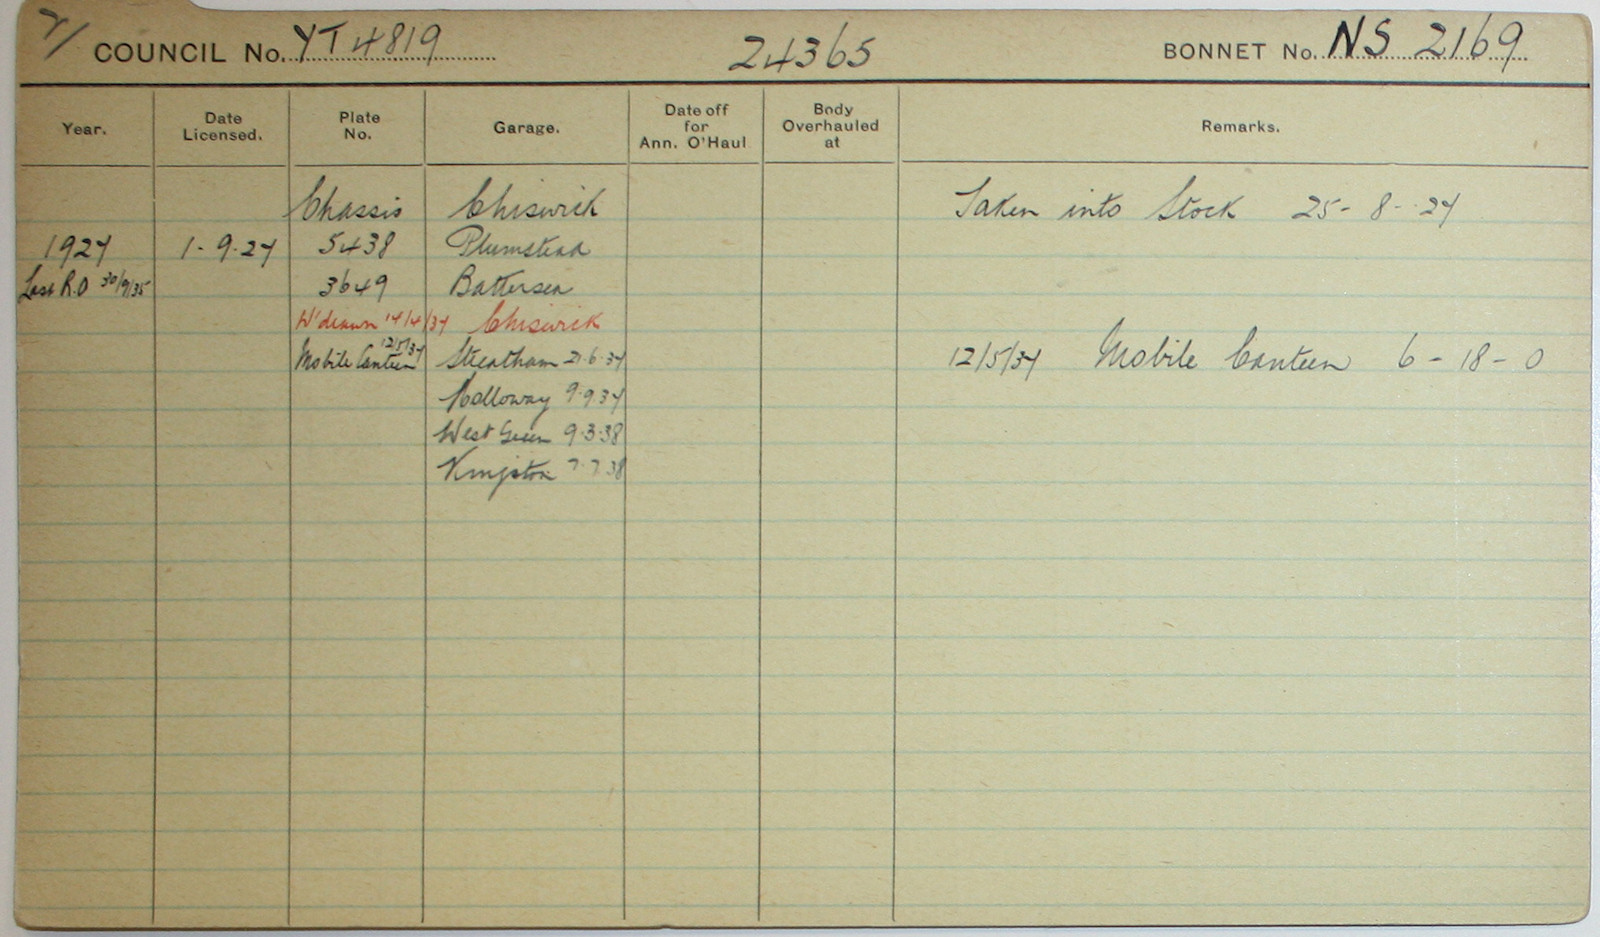 7/ COUNCIL No. YT 4819 24365 BONNET No. NS 2169
Year. Date Licensed. Plate No. Garage. Date off for Ann. O'Haul Body Overhauled at Remarks.
Chassis Chiswick Taken into Stock 25-8-27
1927 1-9-27 5438 Plumstead
Last R.O 30/9/35 3649 Battersea
W'drawn 14/4/37 Chiswick
Mobile Canteen 12/5/37 Streatham 21.6.37 12/5/37 Mobile Canteen 6-18-0
Holloway 9.9.37
West Green 9.3.38
Kingston 7.7.38